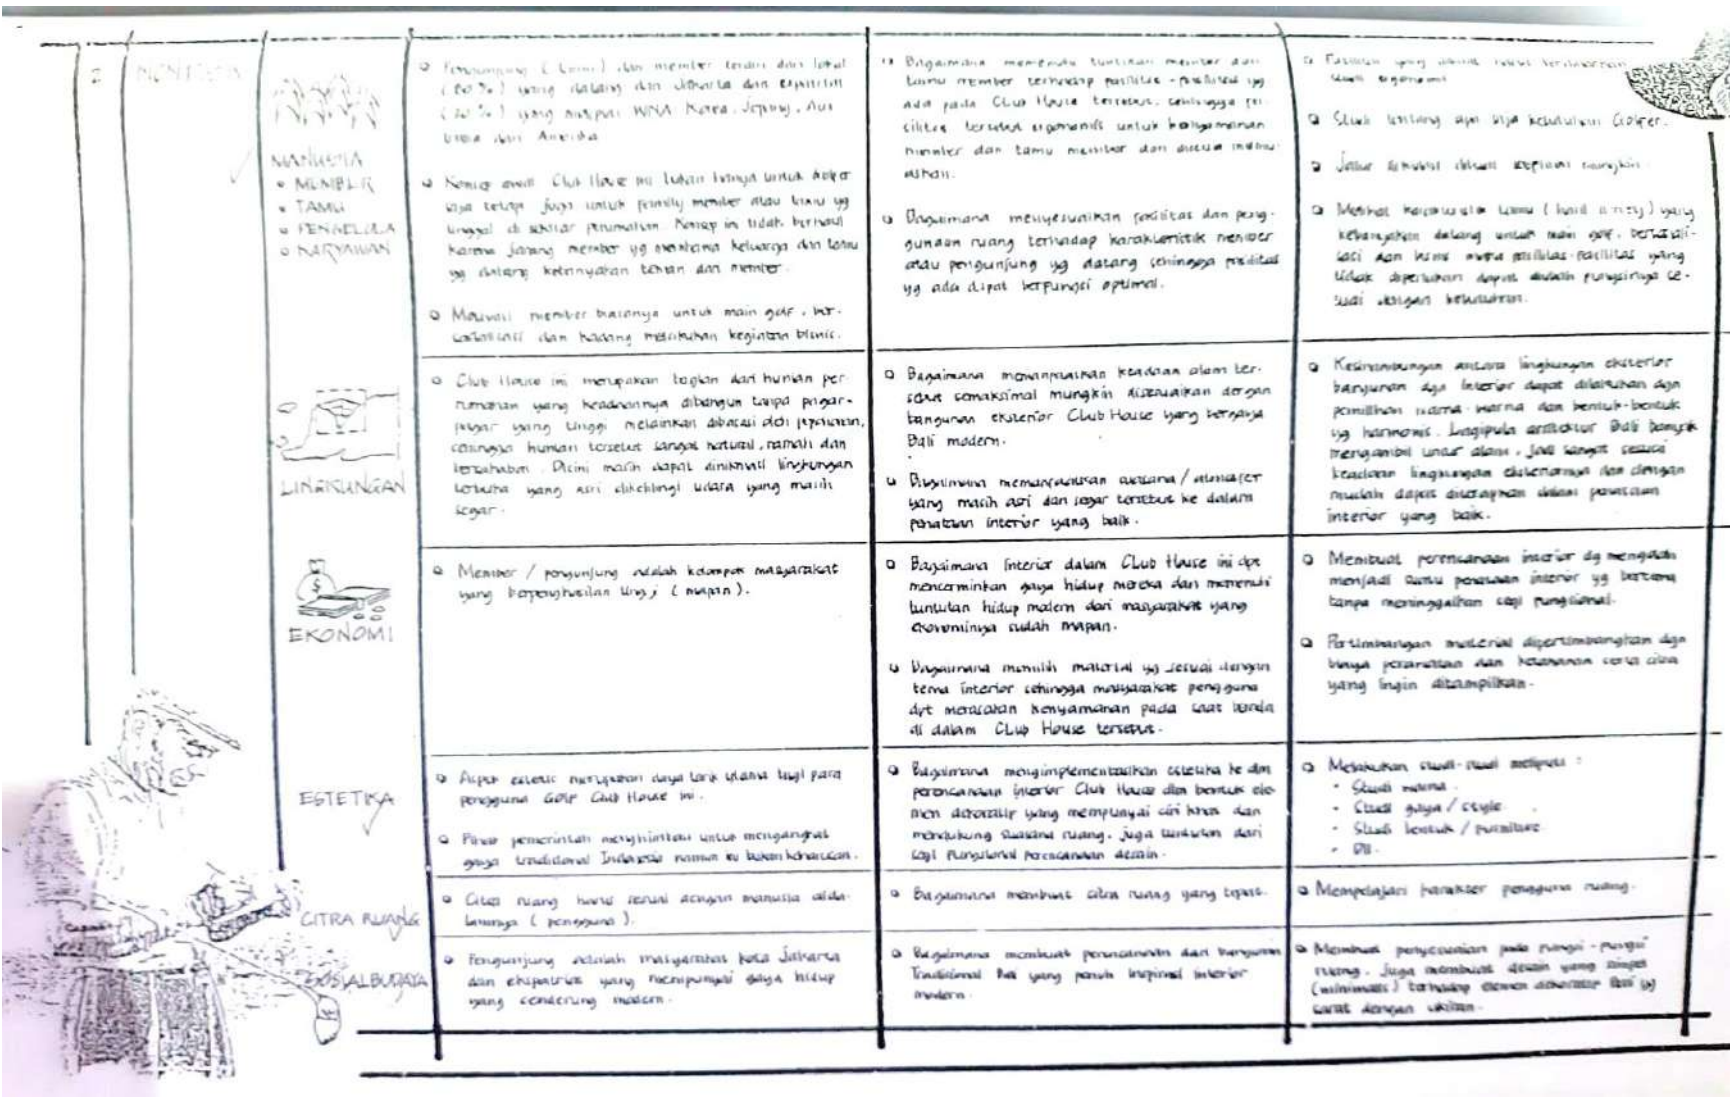 2
NON FISIK
MANUSIA
MEMBER
TAMU
PENGELOLA
KARYAWAN
Pengunjung (tamu) dan member terdiri dari lokal
(80%) yang datang dari Jakarta dan
yang meliputi WNA Korea, Jepang, Aus
tralia dan Amerika
Konsep awal Club House ini bukan hanya untuk
saja tetapi juga untuk family member atau tamu yg
tinggal di sekitar perumahan. Konsep ini tidak berhasil
karena jarang member yg membawa keluarga dan tamu
yg datang kebanyakan teman dari member.
Motivasi member biasanya untuk main golf, ber-
sosialisasi dan kadang melakukan kegiatan bisnis.
Bagaimana memenuhi tuntutan member dan
tamu member terhadap fasilitas-fasilitas yg
ada pada Club House tersebut, sehingga fa-
silitas tersebut ergonomis untuk kenyamanan
member dan tamu member dan
Bagaimana menyesuaikan fasilitas dan peng-
gunaan ruang terhadap karakteristik member
atau pengunjung yg datang sehingga fasilitas
yg ada dapat berfungsi optimal.
Fasilitas yang
ergonomi
Studi tentang apa saja kebutuhan Golfer.
Jalur sirkulasi mungkin.
Melihat karakteristik tamu yang
kebanyakan datang untuk main golf, bersosiali-
sasi dan bisnis maka fasilitas-fasilitas yang
tidak diperlukan dapat diubah fungsinya se-
suai dengan kebutuhan.
LINGKUNGAN
Club House ini merupakan bagian dari hunian per-
rumahan yang keadaannya dibangun tanpa pagar-
pagar yang tinggi melainkan dibatasi oleh pepohonan,
sehingga hunian tersebut sangat natural, ramah dan
bersahabat. Disini masih dapat dinikmati lingkungan
terbuka yang asri dikelilingi udara yang masih
segar.
Bagaimana memanfaatkan keadaan alam ter-
sebut semaksimal mungkin disesuaikan dengan
bangunan eksterior Club House yang bergaya
Bali modern.
Bagaimana memanfaatkan suasana/atmosfer
yang masih asri dan segar tersebut ke dalam
penataan interior yang baik.
Kesinambungan antara lingkungan eksterior
bangunan dgn interior dapat dilakukan dgn
pemilihan warna-warna dan bentuk-bentuk
yg harmonis. Lagipula arsitektur Bali banyak
mengambil unsur alam, jadi sangat sesuai
keadaan lingkungan eksteriornya dan dengan
mudah dapat diterapkan dalam penataan
interior yang baik.
$
EKONOMI
Member / pengunjung adalah kelompok masyarakat
yang berpenghasilan tinggi (mapan).
Bagaimana interior dalam Club House ini dpt
mencerminkan gaya hidup mereka dan memenuhi
tuntutan hidup modern dari masyarakat yang
ekonominya sudah mapan.
Bagaimana memilih material yg sesuai dengan
tema interior sehingga masyarakat pengguna
dpt merasakan kenyamanan pada saat berada
di dalam Club House tersebut.
Membuat perencanaan interior dg mengolah
menjadi suatu penataan interior yg bertema
tanpa meninggalkan segi fungsional.
Pertimbangan material dipertimbangkan dgn
biaya perawatan dan ketahanan serta citra
yang ingin ditampilkan.
ESTETIKA
Aspek estetis merupakan daya tarik utama bagi para
pengguna Golf Club House ini.
Pihak pemerintah menghimbau untuk mengangkat
gaya tradisional Indonesia namun itu bukan keharusan.
Bagaimana mengimplementasikan estetika ke dlm
perencanaan interior Club House dlm bentuk ele-
men dekoratif yang mempunyai ciri khas dan
mendukung suasana ruang, juga tuntutan dari
segi fungsional perencanaan desain.
Melakukan studi-studi meliputi :
- Studi warna.
- Studi gaya / style.
- Studi bentuk / furniture.
- Dll.
CITRA RUANG
Citra ruang harus sesuai dengan manusia dida-
lamnya (pengguna).
Bagaimana membuat citra ruang yang tepat.
Mempelajari karakter pengguna ruang.
SOSIAL BUDAYA
Pengunjung adalah masyarakat kota Jakarta
dan ekspatriat yang mempunyai gaya hidup
yang cenderung modern.
Bagaimana membuat perencanaan dari bangunan
Tradisional Bali yang penuh inspirasi interior
modern.
Membuat penyesuaian pada fungsi-fungsi
ruang. Juga membuat desain yang simpel
(minimalis) terhadap elemen dekoratif Bali yg
sarat dengan ukiran.